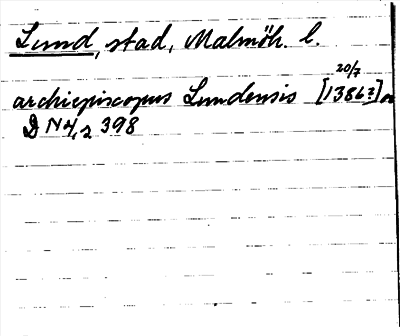 Lund, stad, Malmöh. l.
20/7
archiepiscopus Lundensis [1386?]
DN 4,2 398